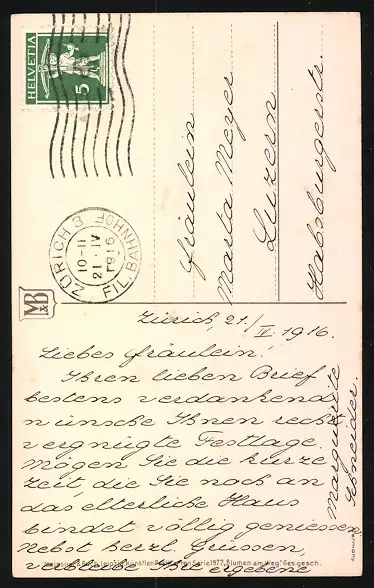 HELVETIA
5
ZÜRICH 3 BAHNHOF
10-11
21·IV
1916
FIL.
Fräulein
Marta Meyer
Luzern
Habsburgerstr.
M&B
Zürich, 21./ 1916.
Liebes Fräulein!
Ihren lieben Brief
bestens verdankend
wünsche Ihnen recht
vergnügte Festtage.
Mögen Sie die kurze
Zeit, die Sie noch an
das elterliche Haus
bindet völlig geniessen
Nebst herzl. Grüssen,
verbleibe Ihre ergebene
Marguerite
Schneider.
Serie 1977, "Blumen am Weg" Ges. gesch.
Germany